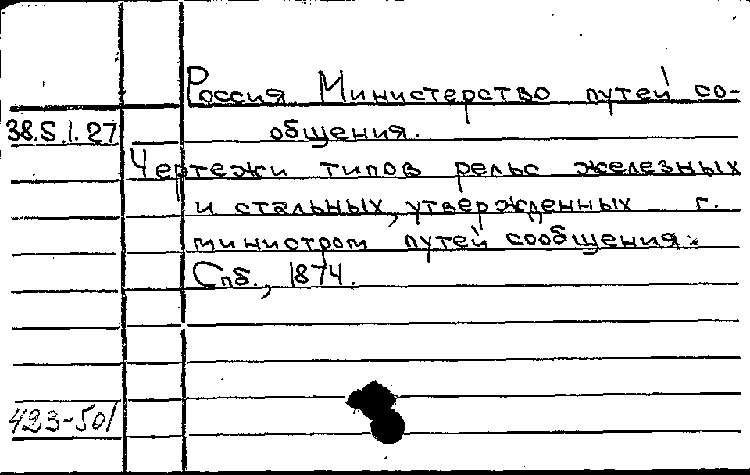 Россия Министерство путей со-
38.5.1.27 общения.
Чертежи типов рельс железных
и стальных, утвержденных г.
министром путей сообщения.
Спб., 1874.
423-501